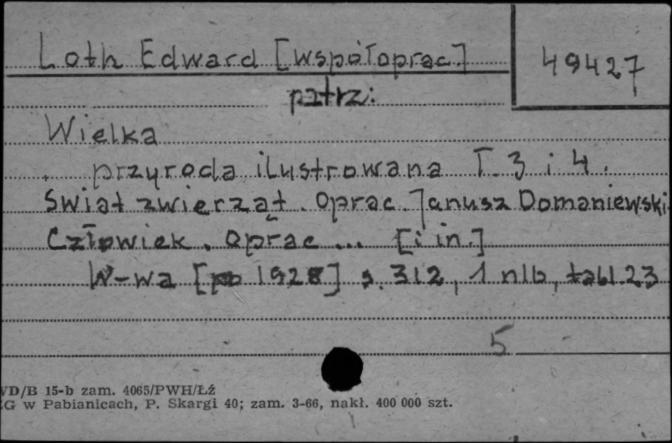 Loth Edward [współoprac.]
49427
patrz:
Wielka
przyroda ilustrowana T. 3 i 4.
Świat zwierząt. Oprac. Janusz Domaniewski.
Człowiek. Oprac... [i in.]
W-wa [po 1928] s. 312, 1 nlb, tabl. 23
5
WD/B 15-b zam. 4065/PWH/Łź
ZG w Pabianicach, P. Skargi 40; zam. 3-66, nakł. 400 000 szt.